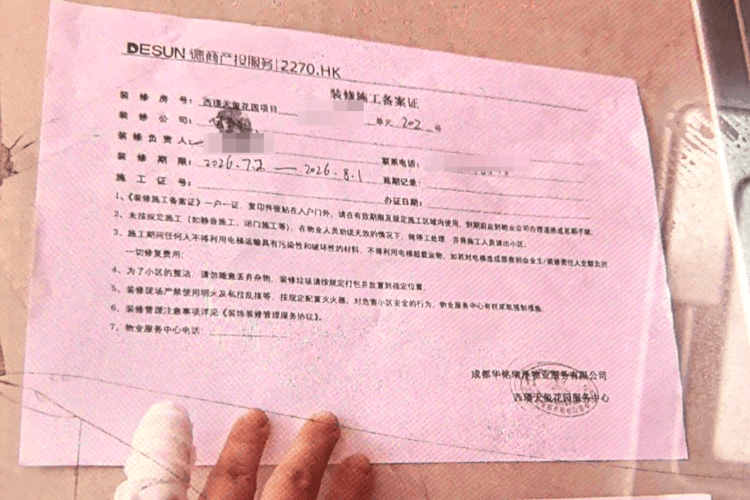 DESUN 德商产投服务 | 2270.HK
装修施工备案证
装修房号：西璟天玺花园项目 单元 202 号
装修公司：
装修负责人： 联系电话：
装修期限：2026.7.2 — 2026.8.1 延期记录：
施工证号： 办证日期：
1、《装修施工备案证》一户一证，复印件张贴在入户门外，请在有效期限及规定施工区域内使用，到期前应到物业公司办理退换或延期手续。
2、未按规定施工（如静音施工、闭门施工等），在物业人员劝说无效的情况下，做停工处理，并将施工人员请出小区；
3、施工期间任何人不得利用电梯运输具有污染性和破坏性的材料，不得利用电梯超载运物，如若对电梯造成损害则由业主/装修责任人全额负担
一切修复费用；
4、为了小区的整洁，请勿随意丢弃杂物，装修垃圾请按规定打包并放置到指定位置。
5、装修现场严禁使用明火及私拉乱接等，按规定配置灭火器，对危害小区安全的行为，物业服务中心有权采取强制措施。
6、装修管理注意事项详见《装饰装修管理服务协议》。
7、物业服务中心电话：
成都华铭瑞 物业服务有限公司
西璟天玺花园服务中心